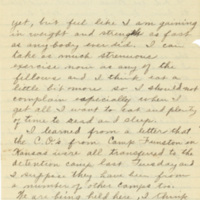 yet, but feel like I am gaining
in weight and strength as fast
as anybody ever did. I can
take as much strenuous
exercise now as any of the
fellows and I think use a
little bit more so I should not
complain especially when I
get all I want to eat and plenty
of time to read and sleep.
I learned from a letter that
the C.O.s from Camp Funston in
Kansas were all transferred to the
detention camp last Tuesday and
I suppose they have been from
a number of other camps too.
We are being held here, I